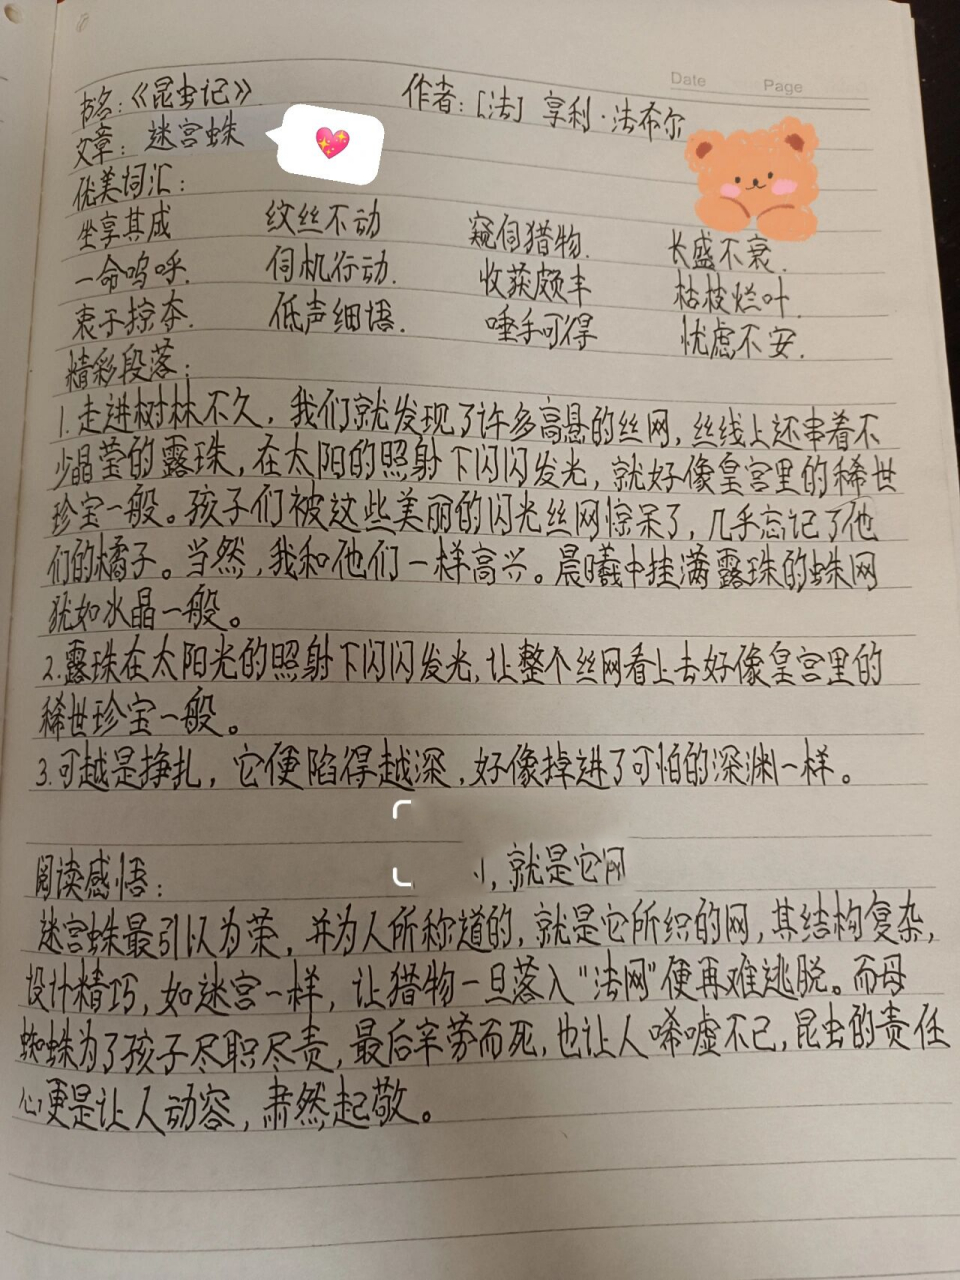 Date Page
书名：《昆虫记》 作者：[法] 亨利·法布尔
文章：迷宫蛛
优美词汇：
坐享其成 纹丝不动 窥伺猎物. 长盛不衰.
一命呜呼. 伺机行动. 收获颇丰 枯枝烂叶.
衷于掠夺. 低声细语. 唾手可得 忧虑不安.
精彩段落：
1.走进树林不久，我们就发现了许多高悬的丝网，丝线上还串着不
少晶莹的露珠，在太阳的照射下闪闪发光，就好像皇宫里的稀世
珍宝一般。孩子们被这些美丽的闪光丝网惊呆了，几乎忘记了他
们的橘子。当然，我和他们一样高兴。晨曦中挂满露珠的蛛网
犹如水晶一般。
2.露珠在太阳光的照射下闪闪发光，让整个丝网看上去好像皇宫里的
稀世珍宝一般。
3.可越是挣扎，它便陷得越深，好像掉进了可怕的深渊一样。
阅读感悟： ，就是它网
迷宫蛛最引以为荣，并为人所称道的，就是它所织的网，其结构复杂，
设计精巧，如迷宫一样，让猎物一旦落入“法网”便再难逃脱。而母
蜘蛛为了孩子尽职尽责，最后辛劳而死，也让人唏嘘不已，昆虫的责任
心更是让人动容，肃然起敬。